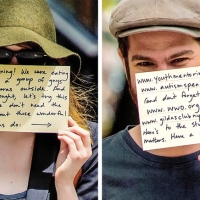 ning! We were eating
a group of guys
ras outside. And
ought, let's try this
e don't need the
ut these wonderful
ns do: →
www.youthmentoring
www.autismspea
(and don't forget
www.wwo.org
www.gildasclubny
here's to the stu
matters. Have a